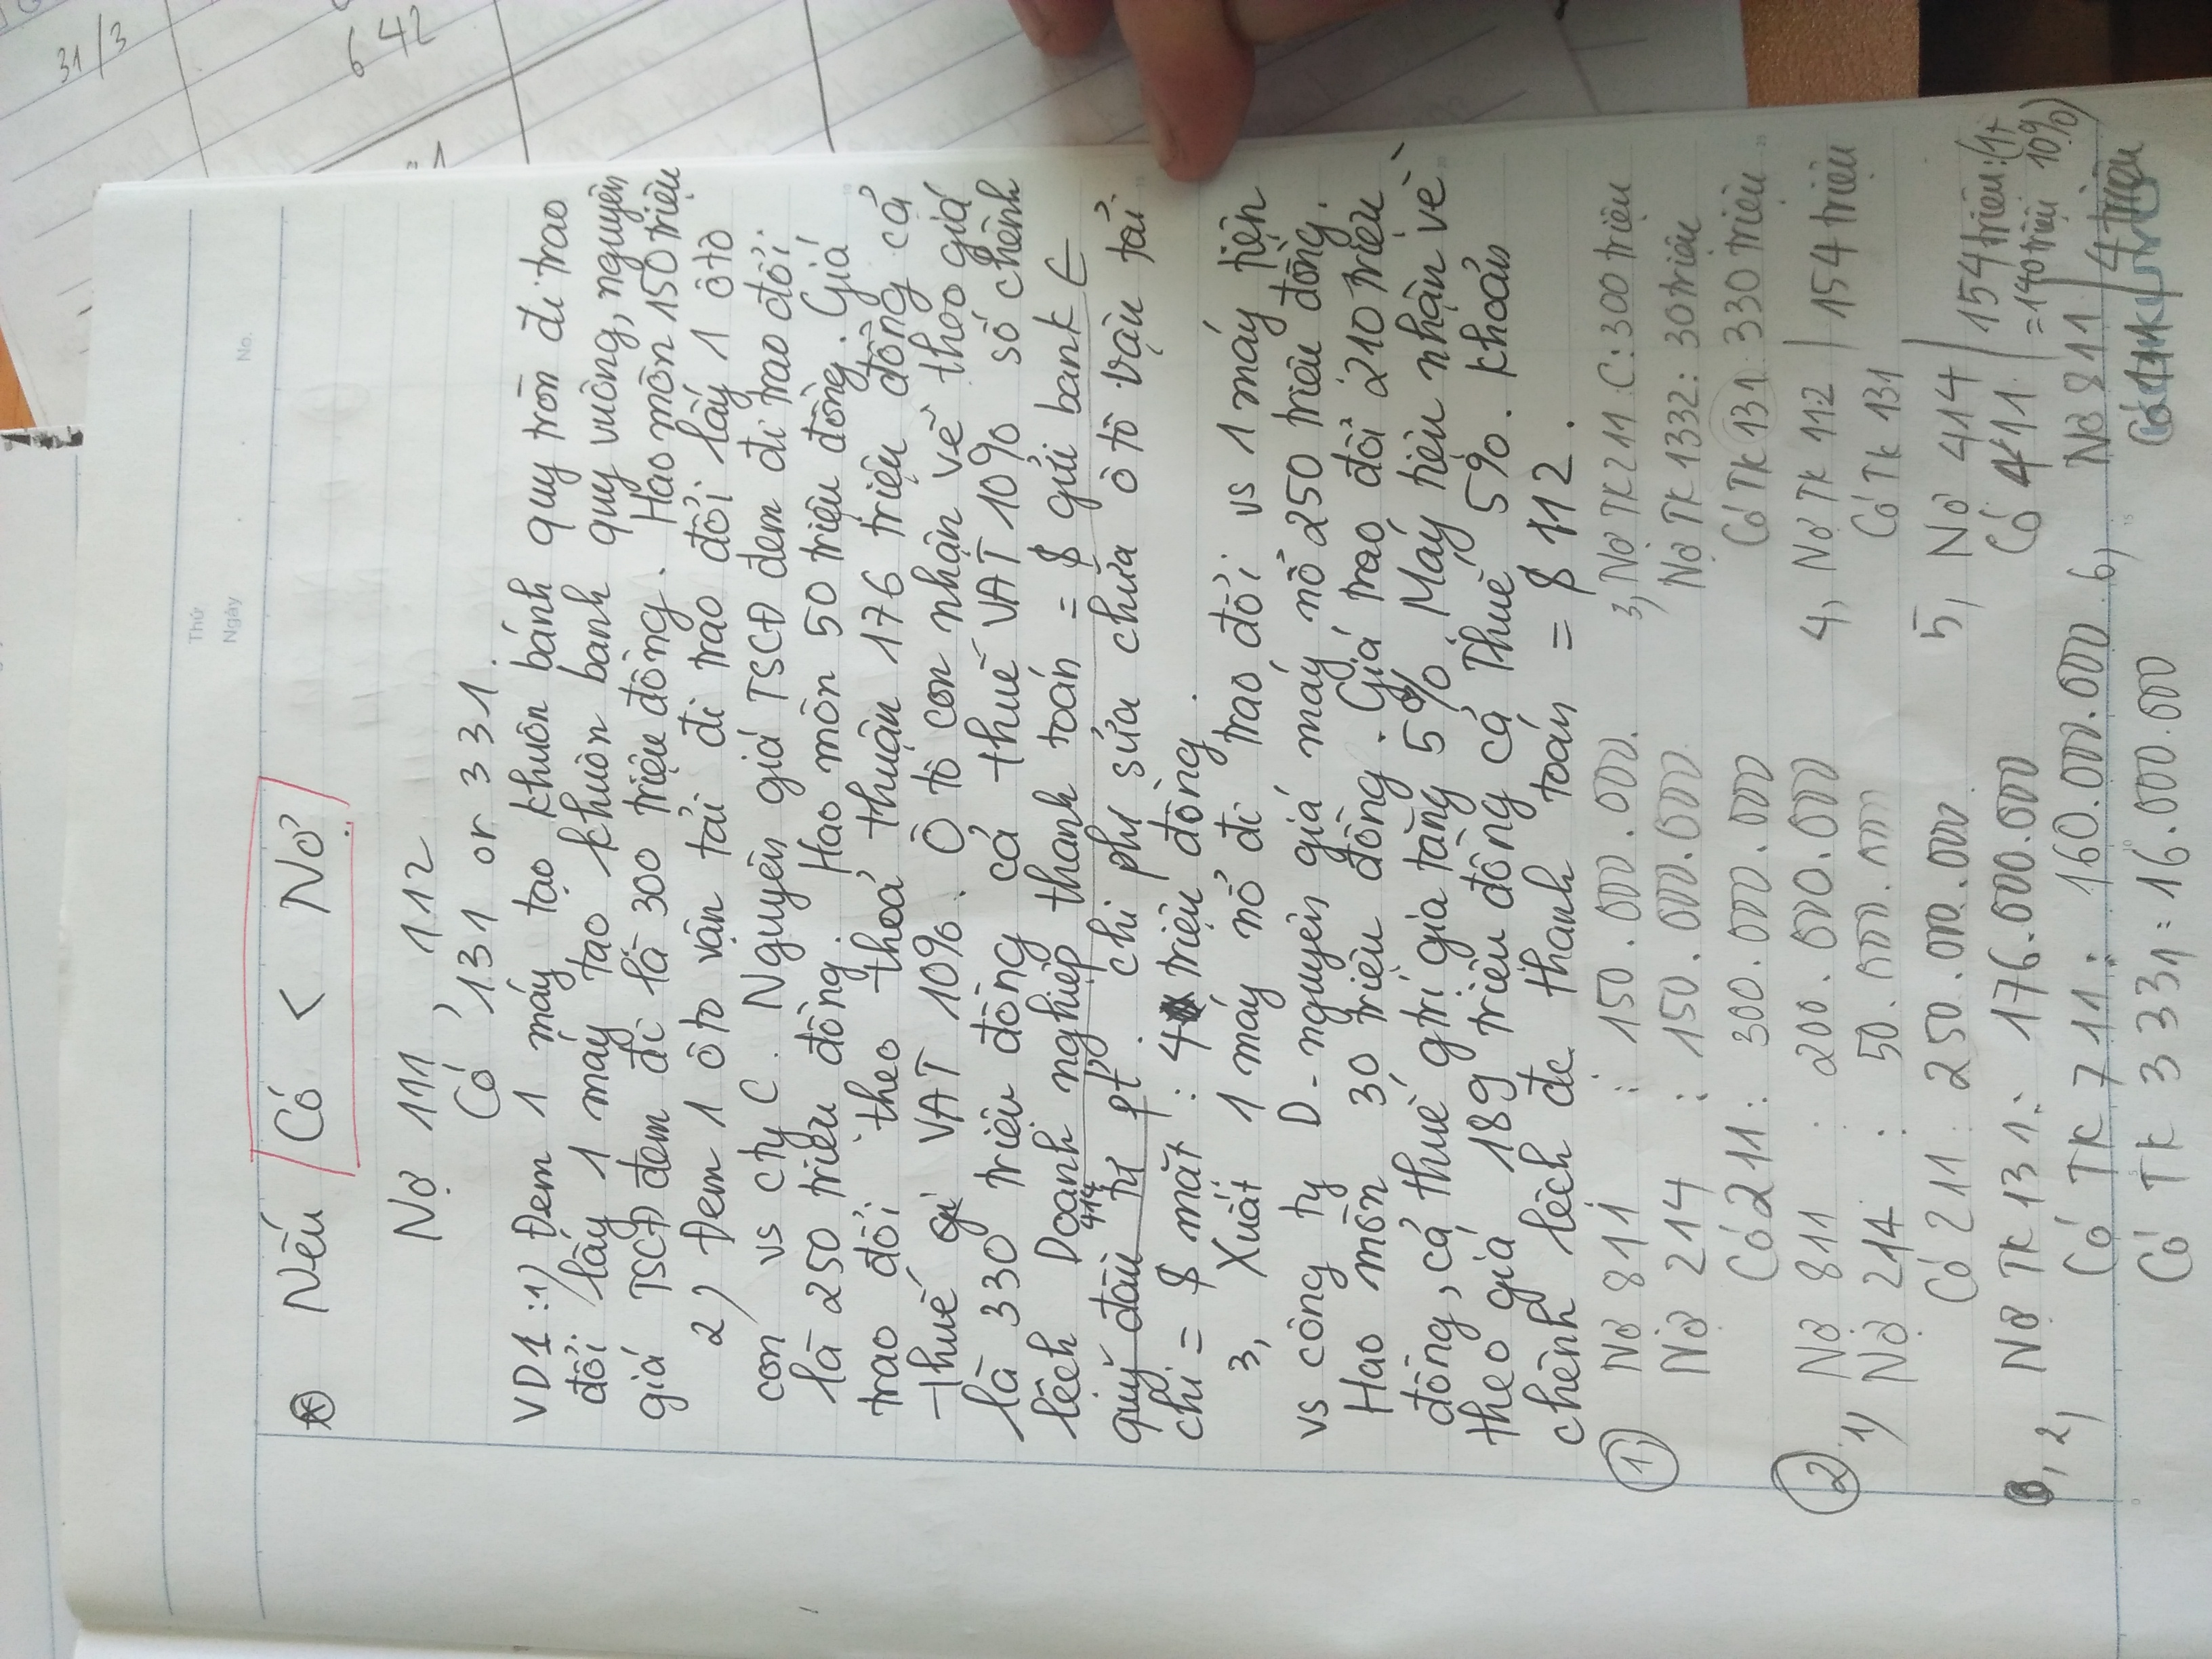 31/3
642
Thứ
Ngày
No.
⊛ Nếu Có < Nợ
Nợ 111, 112
Có 131 or 331.
VD1: 1) Đem 1 máy tạo khuôn bánh quy tròn đi trao
đổi lấy 1 máy tạo khuôn banh quy vuông, nguyên
giá TSCĐ đem đi là 300 triệu đồng. Hao mòn 150 triệu
2) Đem 1 ôto vận tải đi trao đổi lấy 1 ôto
con vs cty C. Nguyên giá TSCĐ đem đi trao đổi
là 250 triệu đồng. Hao mòn 50 triệu đồng. Giá
trao đổi theo thoả thuận 176 triệu đồng cả
thuế VAT 10%. Ô tô con nhận về theo giá
là 330 triệu đồng cả thuế VAT 10% số chênh
lệch Doanh nghiệp thanh toán = $ gửi bank ∈
quỹ đầu tư pt 414. chi phí sửa chữa ô tô vận tải
chi = $ mặt : 4 triệu đồng.
3, Xuất 1 máy nổ đi trao đổi vs 1 máy tiện
vs công ty D - nguyên giá máy nổ 250 triệu đồng.
Hao mòn 30 triệu đồng. Giá trao đổi 210 triệu
đồng, cả thuế gtrị gia tăng 5% Máy tiện nhận về
theo giá 189 triệu đồng cả Thuế 5%. khoản
chênh lệch đc thanh toán = $ 112.
① Nợ 811 : 150.000.000.
Nợ 214 : 150.000.000
Có 211 : 300.000.000
② 1) Nợ 811 : 200.000.000
Nợ 214 : 50.000.000
Có 211 : 250.000.000
2) Nợ TK 131 : 176.000.000
Có TK 711 : 160.000.000
Có TK 3331 : 16.000.000
3) Nợ TK 211 C : 300 triệu
Nợ TK 1332 : 30 triệu
Có TK 131 : 330 triệu
4, Nợ TK 112 / 154 triệu
Có TK 131
5, Nợ 414 / 154 triệu : (1+
Có 411 / = 140 triệu 10%)
6, Nợ 811 / 4 triệu